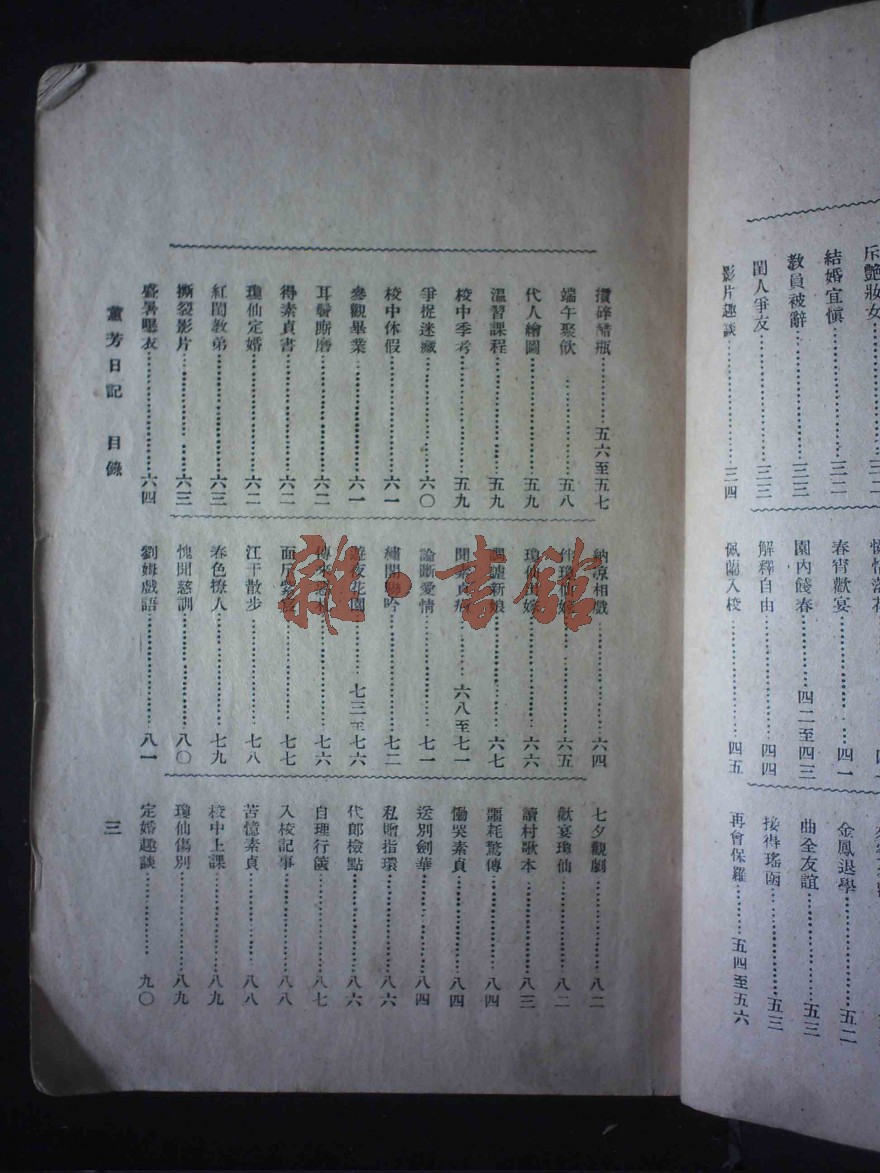 斥艷妝女………三二
結婚宜愼………三二
敎員被辭………三三
閨人爭友………三三
影片趣談………三四
春宵歡宴………四一
園內餞春………四二至四三
解釋自由………四四
佩蘭入校………四五
金鳳退學………五二
曲全友誼………五三
接得瑤函………五三
再會保羅………五四至五六
瓶………五六至五七
端午聚飲………五八
代人繪圖………五九
溫習課程………五九
校中季考………五九
爭捉迷藏………六〇
校中休假………六一
參觀畢業………六一
耳鬢厮磨………六二
得素貞書………六二
瓊仙定婚………六二
紅閨敎弟………六三
撕裂影片………六三
盛暑曬衣………六四
納凉相戲………六四
瓊仙………六五
瓊仙………六六
新娘………六七
素貞病………六八至七一
論斷愛情………七一
吟………七二
遊夜花園………七三至七六
………七六
面斥………七七
江干散步………七八
春色撩人………七九
愧聞慈訓………八〇
劉姆戲語………八一
七夕觀劇………八二
歡宴瓊仙………八二
讀村歌本………八三
噩耗驚傳………八四
慟哭素貞………八四
送別劍華………八四
私贈指環………八六
代郎檢點………八六
自理行篋………八七
入校記事………八八
苦憶素貞………八八
校中上課………八九
瓊仙傷別………八九
定婚趣談………九〇
蕙芳日記 目錄
三
雜·書館